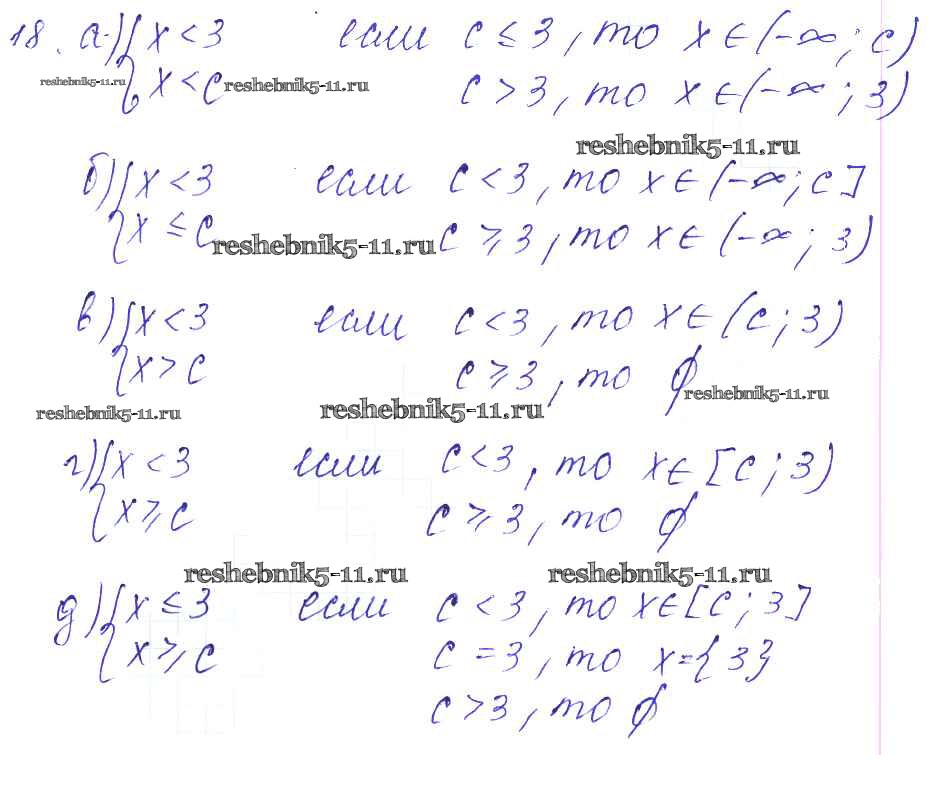 18. а) { x < 3 если c ≤ 3, то x ∈ (-∞; c)
reshebnik5-11.ru { x < c reshebnik5-11.ru c > 3, то x ∈ (-∞; 3)
reshebnik5-11.ru
б) { x < 3 если c < 3, то x ∈ (-∞; c]
{ x ≤ c reshebnik5-11.ru c ⩾ 3, то x ∈ (-∞; 3)
в) { x < 3 если c < 3, то x ∈ (c; 3)
{ x > c c ⩾ 3, то ∅ reshebnik5-11.ru
reshebnik5-11.ru reshebnik5-11.ru
г) { x < 3 если c < 3, то x ∈ [c; 3)
{ x ⩾ c c ⩾ 3, то ∅
reshebnik5-11.ru reshebnik5-11.ru
д) { x ≤ 3 если c < 3, то x ∈ [c; 3]
{ x ⩾ c c = 3, то x = {3}
c > 3, то ∅